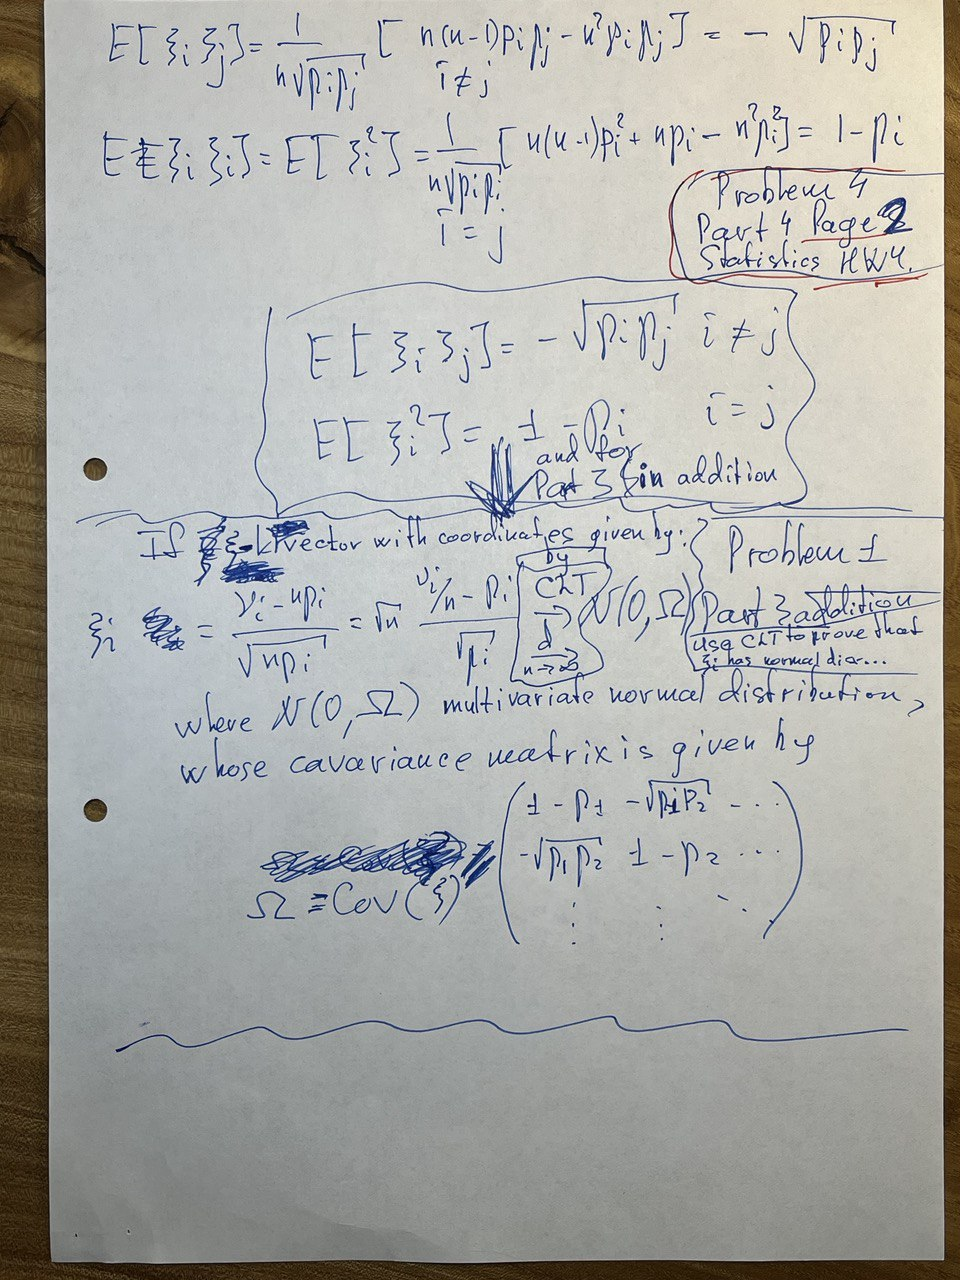 E[ξ_i ξ_j] = 1/(n√(p_i p_j)) [n(n-1)p_i p_j - n²p_i p_j] = - √(p_i p_j)
i ≠ j
E[ξ_i ξ_i] = E[ξ_i²] = 1/(n√(p_i p_i)) [n(n-1)p_i² + np_i - n²p_i²] = 1 - p_i
i = j
Problem 4
Part 4 Page 2
Statistics HW4.
E[ξ_i ξ_j] = - √(p_i p_j) i ≠ j
E[ξ_i²] = 1 - p_i i = j
and for
Part 3 in addition
If ξ - vector with coordinates given by:
Problem 1
Part 3 addition
use CLT to prove that
ξ_i has normal dis...
ξ_i = (ν_i - np_i)/√(np_i) = √n (ν_i/n - p_i)/√p_i
by
CLT
→
d
→
n→∞
N(0, Ω)
where N(0, Ω) multivariate normal distribution,
whose cavariance matrix is given by
1 - p_1 -√(p_1 p_2) ...
-√(p_1 p_2) 1 - p_2 ...
⋮ ⋮ ⋱
Ω ≡ Cov(ξ)